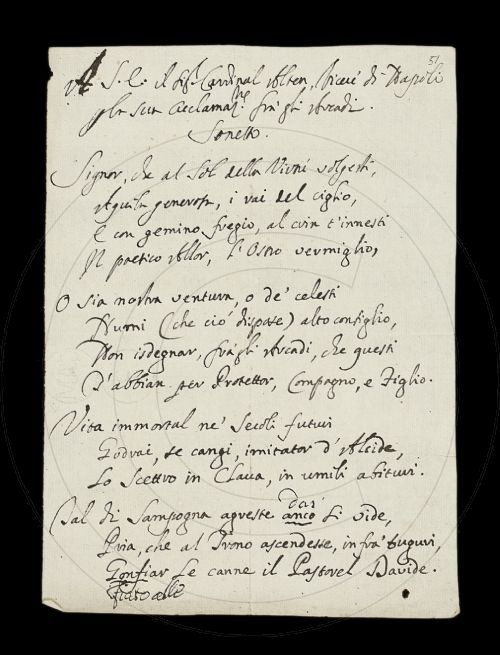 51
A S. E. il Sig.r Cardinal Alten, Vicerè di Napoli
p la sua Acclamaz.ne frà gli Arcadi.
Sonetto.
Signor, che al Sol della Virtù volgesti,
Aquila generosa, i rai del ciglio,
E con gemino fregio, al crin t'innesti
Il poetico Allor, l'Ostro vermiglio,
O sia nostra ventura, o de' celesti
Numi (che ciò dispose) alto consiglio,
Non isdegnar, frà gli Arcadi, che questi
T'abbian per Protettor, Compagno, e Figlio.
Vita immortal ne' Secoli futuri
Godrai, se cangi, imitator d'Alcide,
Lo Scettro in Claua, in umili abituri.
Tal di Sampogna agreste anco si vide,
Pria, che al Trono ascendesse, infrà tuguri,
Gonfiar le canne il Pastorel Davide.